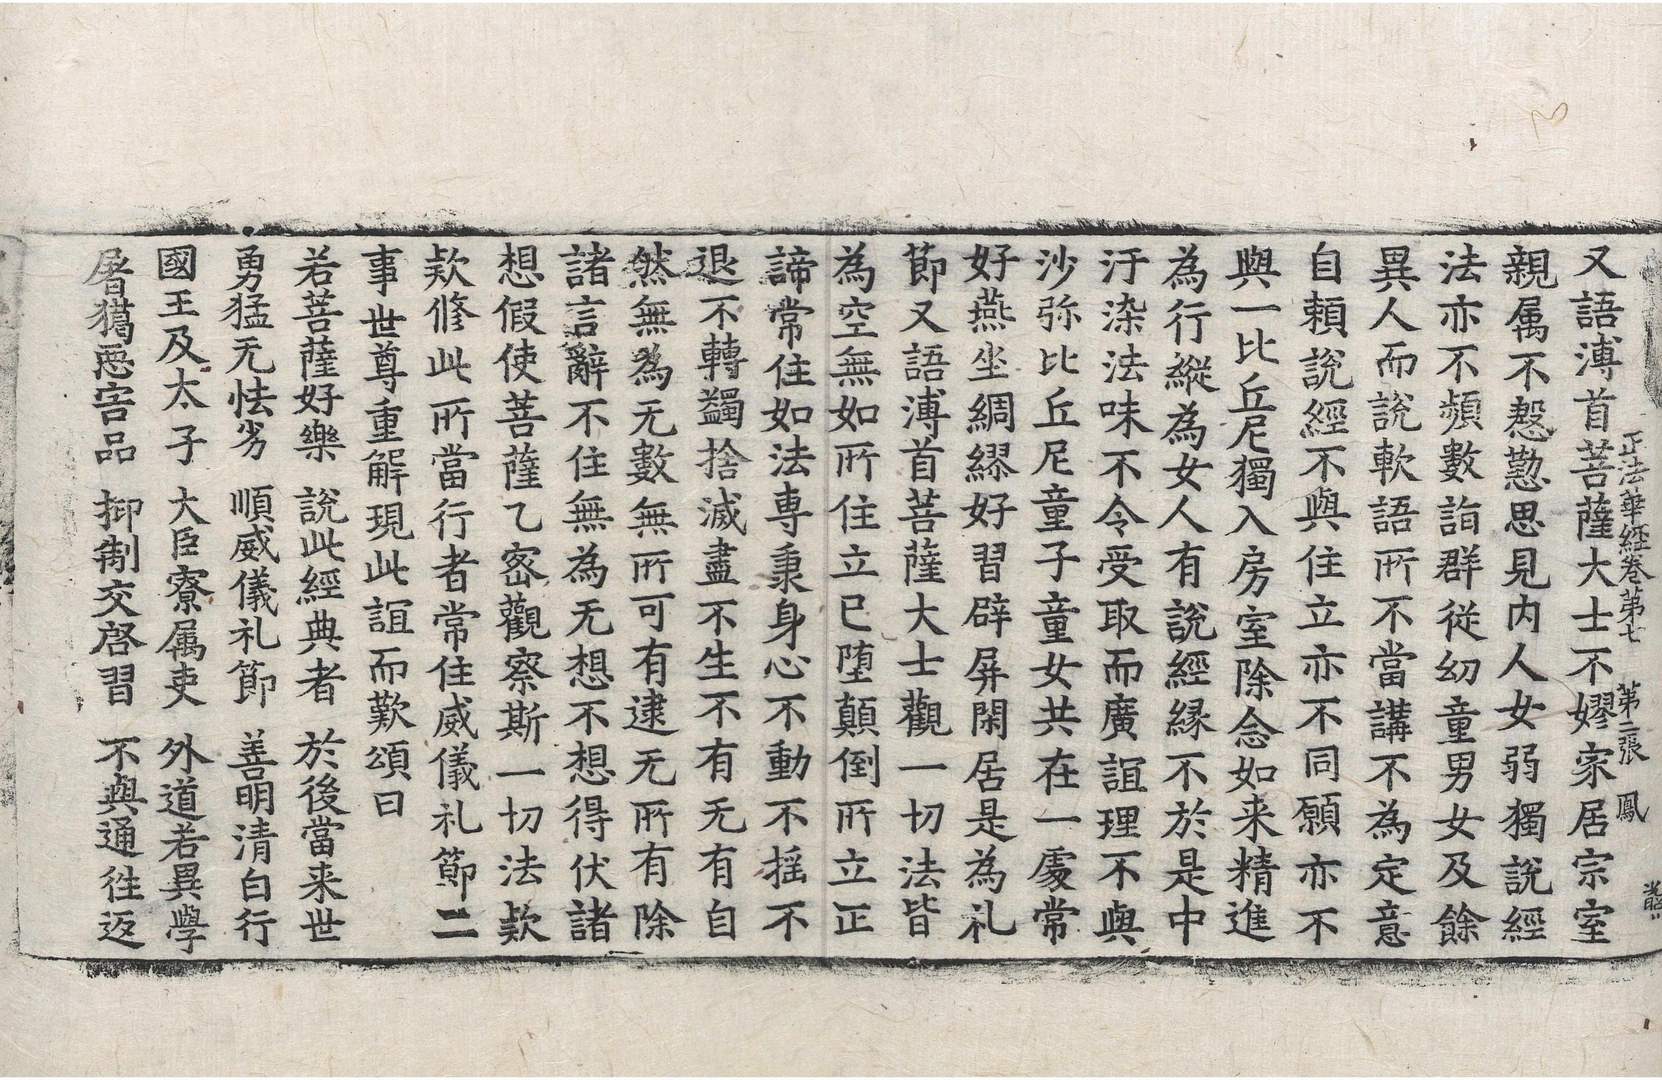 正法華經卷第七 第二張 鳳
又語溥首菩薩大士不嫪家居宗室
親属不慇懃思見内人女弱獨說經
法亦不頻數詣群從幼童男女及餘
異人而說軟語所不當講不為定意
自賴說經不與住立亦不同願亦不
與一比丘尼獨入房室除念如来精進
為行縱為女人有說經緣不於是中
汙染法味不令受取而廣誼理不與
沙弥比丘尼童子童女共在一處常
好燕坐綢繆好習辟屏閑居是為礼
節又語溥首菩薩大士觀一切法皆
為空無如所住立已墮顛倒所立正
諦常住如法專秉身心不動不揺不
退不轉蠲捨滅盡不生不有无有自
然無為无數無所可有逮无所有除
諸言辭不住無為无想不想得伏諸
想假使菩薩乙密觀察斯一切法欵
欵修此所當行者常住威儀礼節二
事世尊重解現此誼而歎頌曰
若菩薩好樂 說此經典者 於後當来世
勇猛无怯劣 順威儀礼節 善明清白行
國王及太子 大臣寮属吏 外道若異學
屠獦惡害品 抑制交啓習 不與通往返